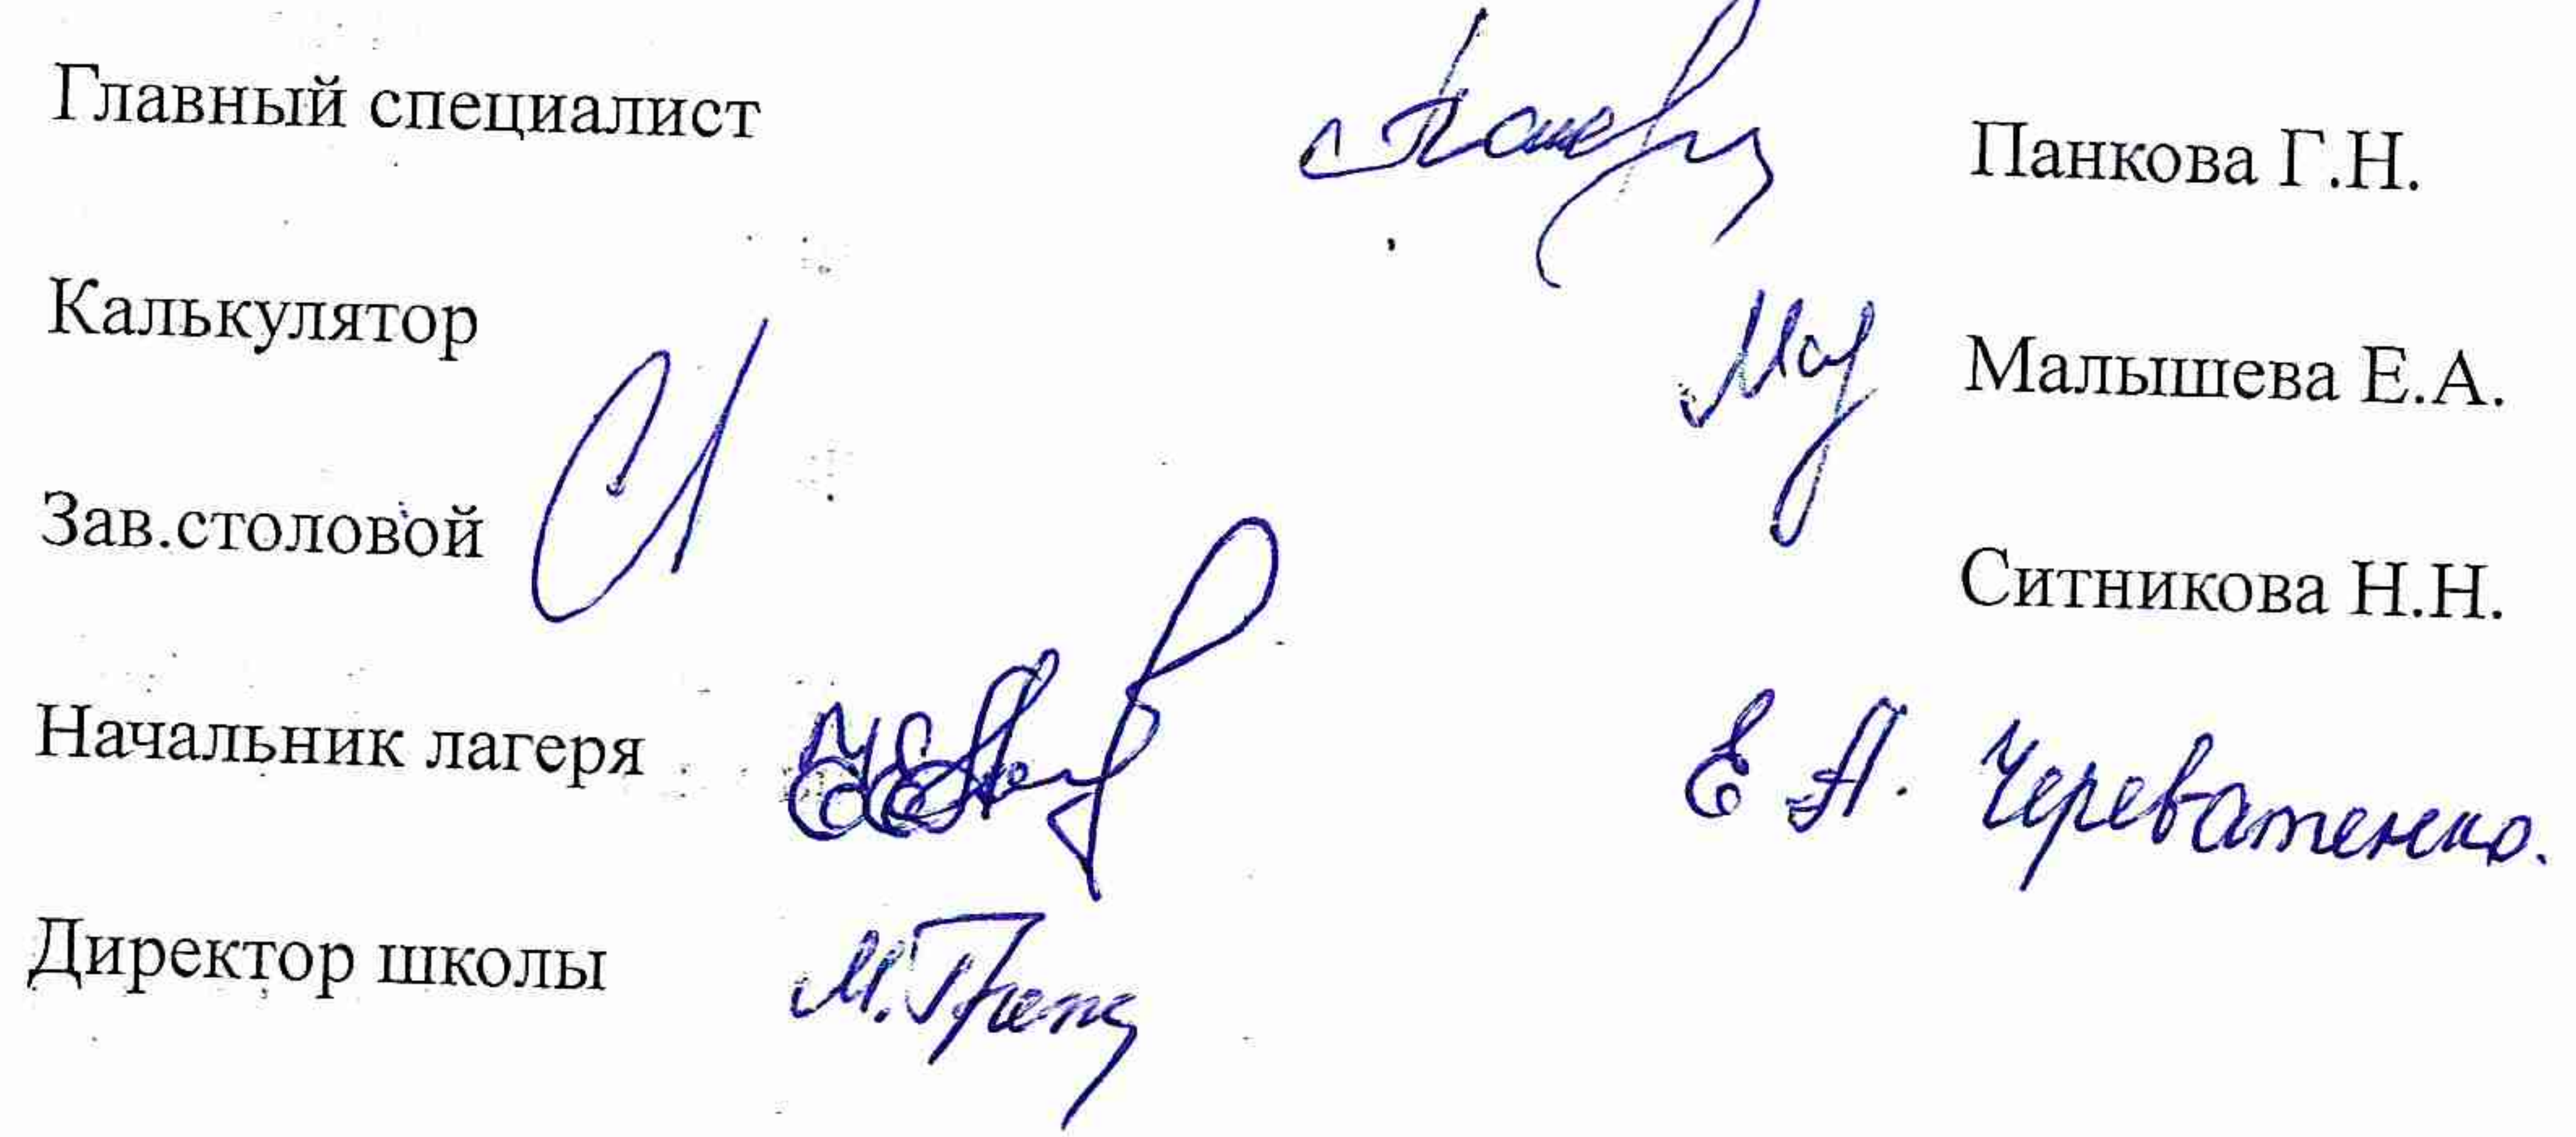 Главный специалист Панкова Г.Н.
Калькулятор Малышева Е.А.
Зав.столовой Ситникова Н.Н.
Начальник лагеря Е.А. Череватенко.
Директор школы